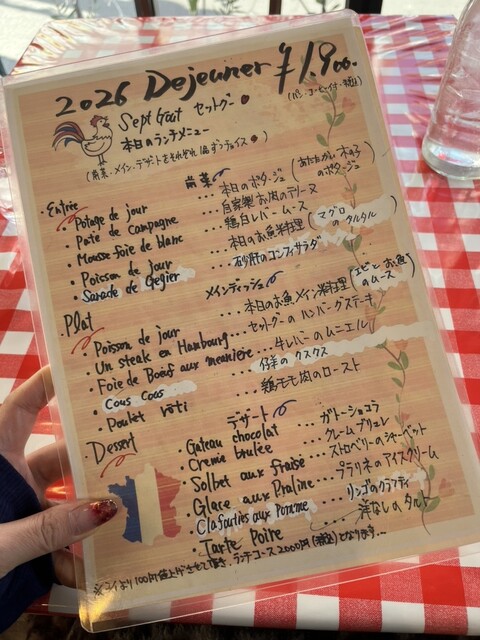 2026 Dejeuner ¥1,900.
(パン・コーヒー付・税込)
Sept Gout セットグー
本日のランチメニュー
(前菜・メイン・デザートをそれぞれ1品ずつチョイス)
・Entrée 前菜
・Potage de jour ・・・本日のポタージュ (あたたかい木の子のポタージュ)
・Pate de Campagne ・・・自家製お肉のテリーヌ
・Mousse foie de blanc ・・・鶏白レバームース
・Poisson de jour ・・・本日のお魚料理 (マグロのタルタル)
・Sarade de Gegier ・・・砂肝のコンフィサラダ
Plat メインディッシュ
・Poisson de jour ・・・本日のお魚メイン料理 (エビとお魚のムース)
・Un steak en Hambourg ・・・セットグーのハンバーグステーキ
・Foie de Bœuf aux meunière ・・・牛レバーのムニエル
・Cous Cous ・・・仔羊のクスクス
・Poulet rôti ・・・鶏モモ肉のロースト
Dessert デザート
・Gateau chocolat ・・・ガトーショコラ
・Creme brulee ・・・クレームブリュレ
・Solbet aux fraise ・・・ストロベリーのシャーベット
・Glace aux Praline ・・・プラリネのアイスクリーム
・Clafouties aux Pomme ・・・リンゴのクラフティ
・Tarte Poire ・・・洋なしのタルト
※より100円値上げさせて頂き、ランチコース2000円(税込)となります…